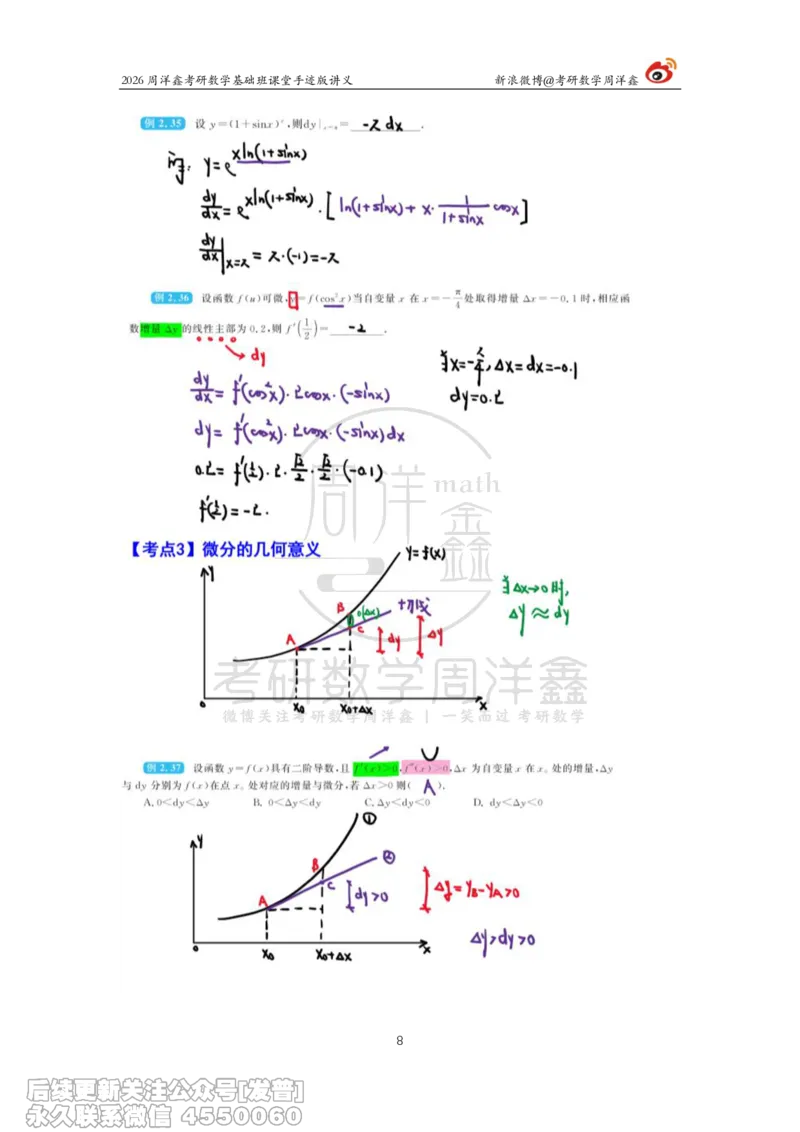 2026 周洋鑫考研数学基础班课堂手迹版讲义 新浪微博@考研数学周洋鑫
例 2.35 设 y=(1+sinx)ˣ,则dy|ₓ₌π= -π dx .
解: y=e^{xln(1+sinx)}
dy/dx = e^{xln(1+sinx)}·[ln(1+sinx)+x·1/(1+sinx)·cosx]
dy/dx|ₓ₌π = π·(-1)=-π
例 2.36 设函数 f(u)可微,y=f(cos²x)当自变量 x 在 x=-π/4处取得增量 Δx=-0.1时,相应函
数增量 Δy 的线性主部为 0.2,则 f′(1/2)= -2 .
dy
当x=-π/4, Δx=dx=-0.1
dy=0.2
dy/dx = f′(cos²x)·2cosx·(-sinx)
dy= f′(cos²x)·2cosx·(-sinx)dx
0.2= f′(1/2)·2·√2/2·√2/2·(-0.1)
f′(1/2)=-2.
周洋鑫
math
【考点3】微分的几何意义
y y=f(x)
当Δx→0时,
Δy≈dy
B o(Δx) 切线
A C dy Δy
0 x₀ x₀+Δx x
考研数学周洋鑫
微博关注考研数学周洋鑫 | 一笑而过 考研数学
例 2.37 设函数 y=f(x)具有二阶导数,且 f′(x)>0,f″(x)>0,Δx 为自变量 x 在 x₀ 处的增量,Δy
与 dy 分别为 f(x)在点 x₀ 处对应的增量与微分,若 Δx>0 则( A ).
A. 0<dy<Δy B. 0<Δy<dy C. Δy<dy<0 D. dy<Δy<0
y ①
②
B
A C dy>0 Δy=y_B-y_A>0
Δy>dy>0
0 x₀ x₀+Δx x
8
后续更新关注公众号[发普]
永久联系微信 4550060